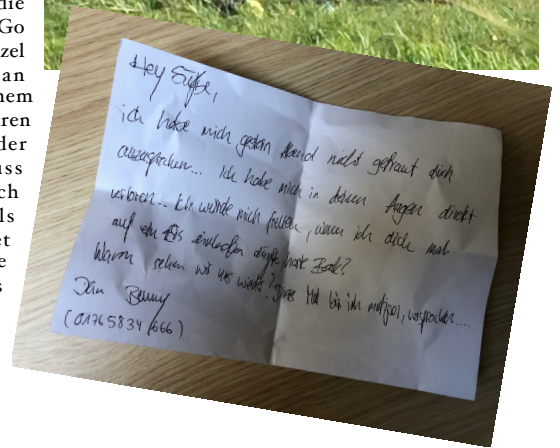 die
Go
zel
an
nem
ren
der
uss
ch
ls
et
e
s
Hey Süße,
ich habe mich gestern Abend nicht getraut dich
anzusprechen... Ich habe mich in deinen Augen direkt
verloren.. Ich würde mich freuen, wenn ich dich mal
auf ein Eis einladen dürfte,
Wann sehen wir uns wieder? Dieses Mal bin ich mutiger, versprochen....
Dein Benny
(01765834666)